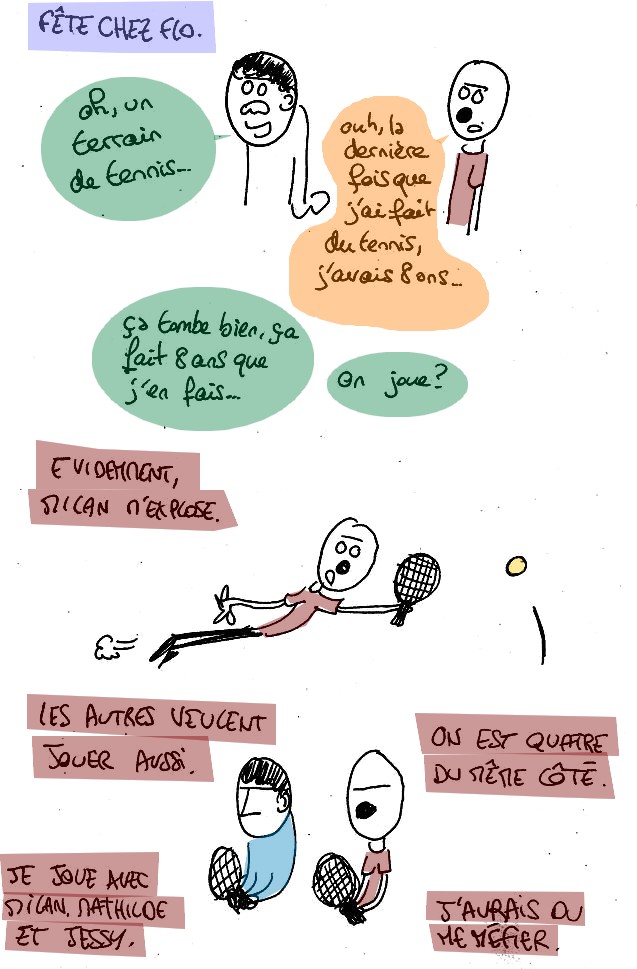 FÊTE CHEZ FLO.
oh, un
terrain
de tennis...
ouh, la
dernière
fois que
j'ai fait
du tennis,
j'avais 8 ans...
ça tombe bien, ça
fait 8 ans que
j'en fais...
on joue?
EVIDEMMENT,
MILAN M'EXPLOSE.
LES AUTRES VEULENT
JOUER AUSSI.
ON EST QUATRE
DU MÊME CÔTÉ.
JE JOUE AVEC
MILAN, MATHILDE
ET JESSY.
J'AURAIS DU
ME MÉFIER.